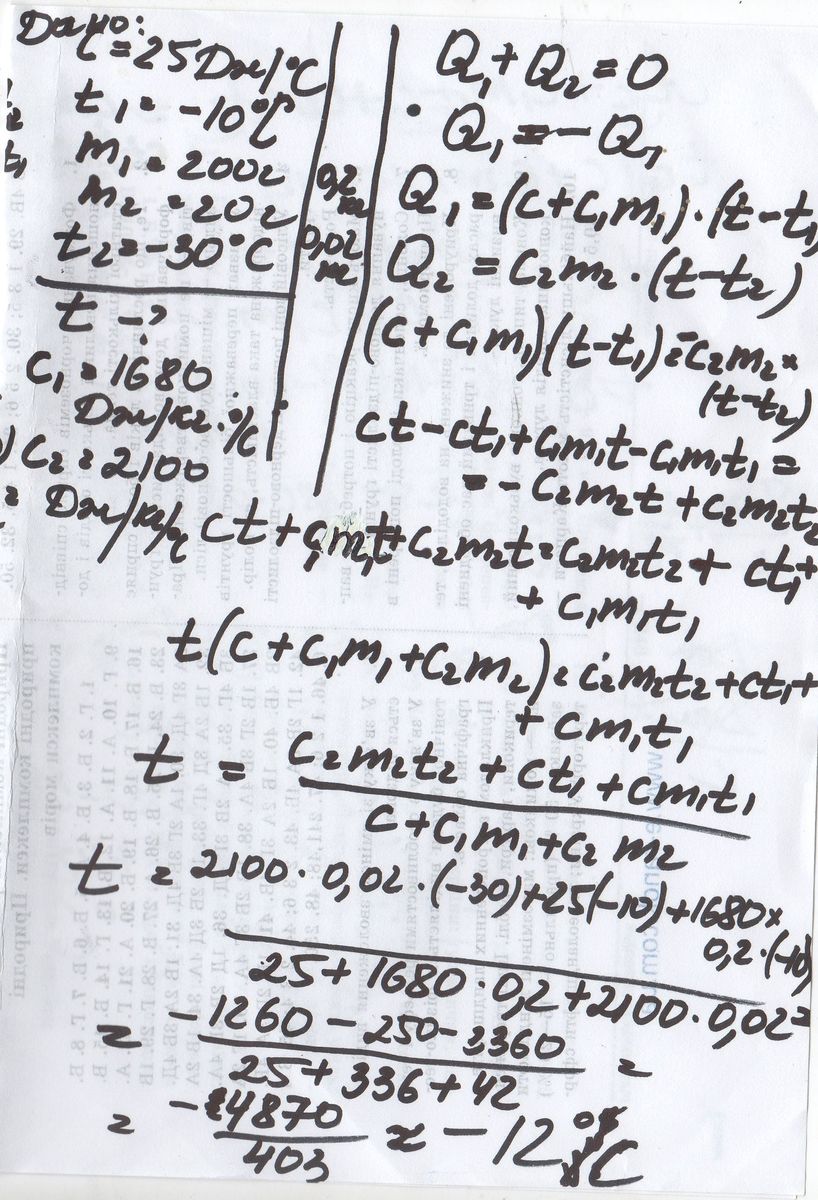 Дано:
C = 25 Дж/°C
t₁ = -10°C
m₁ = 200г
0,2 кг
m₂ = 20г
0,02 кг
t₂ = -30°C
t - ?
C₁ = 1680
Дж/кг·°C
C₂ = 2100
Дж/кг/
Q₁ + Q₂ = 0
Q₁ = - Q₁
Q₁ = (C + C₁m₁)·(t - t₁)
Q₂ = C₂m₂·(t - t₂)
(C + C₁m₁)(t - t₁) = -C₂m₂ ×
(t - t₂)
Ct - Ct₁ + C₁m₁t - C₁m₁t₁ =
= - C₂m₂t + C₂m₂t₂
Ct + C₁m₁t + C₂m₂t = C₂m₂t₂ + Ct₁ +
+ C₁m₁t₁
t(C + C₁m₁ + C₂m₂) = C₂m₂t₂ + Ct₁ +
+ Cm₁t₁
t = C₂m₂t₂ + Ct₁ + Cm₁t₁
C + C₁m₁ + C₂m₂
t = 2100·0,02·(-30) + 25(-10) + 1680 ×
0,2·(-10)
25 + 1680·0,2 + 2100·0,02 =
= -1260 - 250 - 3360 =
25 + 336 + 42
= -4870 ≈ -12°C
403